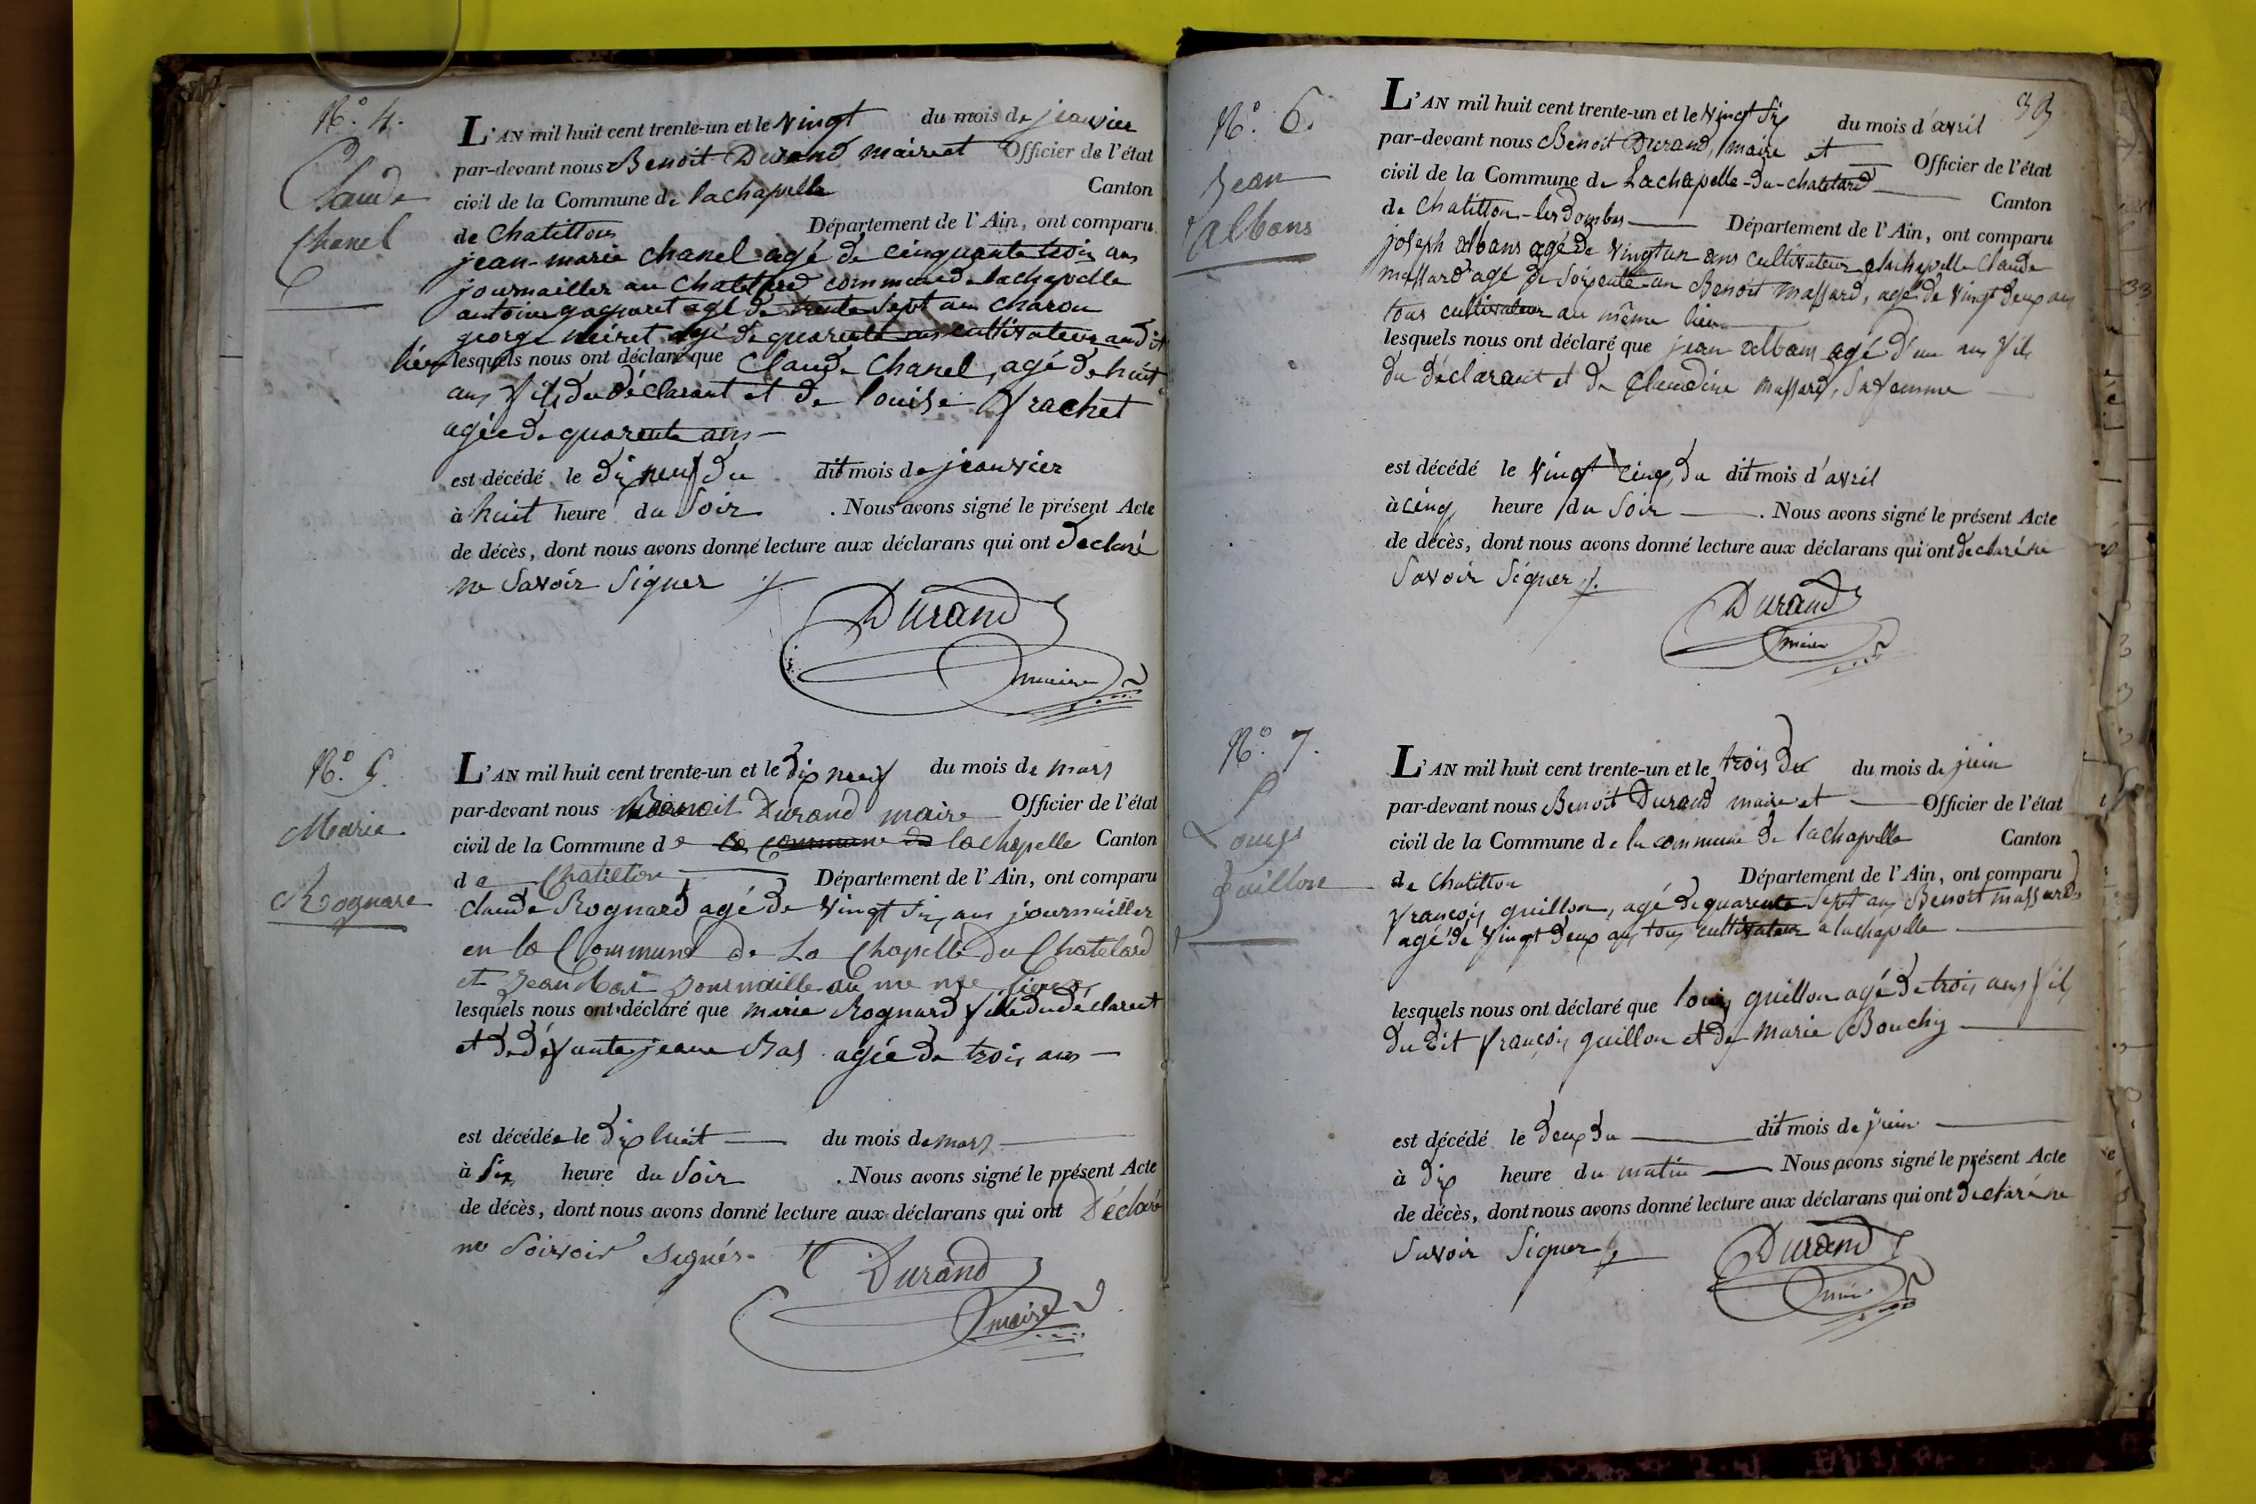 N.º 4.
Claude
Chanel
L'AN mil huit cent trente-un et le vingt du mois de jeanvier
par-devant nous Benoit Durand maire et Officier de l'état
civil de la Commune de lachapelle Canton
de Chatillon Département de l'Ain, ont comparu
jean-marie chanel agé de cinquante trois ans
journailler au Chatelard commune de lachapelle
antoine gaquaret agé de trente sept ans charon
george neiret agé de quarente ans cultivateur audit
lieu lesquels nous ont déclaré que Claude Chanel, agé de huit
ans fils du déclarant et de louise frachet
agée de quarente ans
est décédé le dix neuf du dit mois de jeanvier
à huit heure du Soir . Nous avons signé le présent Acte
de décès, dont nous avons donné lecture aux déclarans qui ont declaré
ne Savoir Signer
Durand
maire
N.º 5.
Marie
Rognare
L'AN mil huit cent trente-un et le dix neuf du mois de mars
par-devant nous Benoit Durand maire Officier de l'état
civil de la Commune de la commune de lachapelle Canton
de Chatillon Département de l'Ain, ont comparu
claude Rognard agé de vingt six ans journailler
en la Commune de La Chapelle du Chatelard
et jean Bas journaille au me me lieux
lesquels nous ont déclaré que marie Rognard fille du déclarent
et de défunte jeane Bas agée de trois ans
est décédée le dix huit du mois de mars
à Six heure du Soir . Nous avons signé le présent Acte
de décès, dont nous avons donné lecture aux déclarans qui ont Déclaré
ne Soivoir Signés
Durand
maire
39
N.º 6.
Jean
albans
L'AN mil huit cent trente-un et le vingt Six du mois d'avril
par-devant nous Benoit Durand, maire et Officier de l'état
civil de la Commune de Lachapelle-du-chatelard Canton
de Chatillon-les dombes Département de l'Ain, ont comparu
joseph albans agé de vingt un ans cultivateur a lachapelle Claude
massard agé de Soixente an Benoit massard, agé de vingt deux ans
tous cultivateur au même lieu
lesquels nous ont déclaré que jean albans agé d'un ans fils
du déclarant et de Claudine massard, Sa femme
est décédé le vingt cinq du dit mois d'avril
à cinq heure du Soir . Nous avons signé le présent Acte
de décès, dont nous avons donné lecture aux déclarans qui ont declaré ne
Savoir Signer
Durand
maire
N.º 7.
Louys
guillon
L'AN mil huit cent trente-un et le trois du du mois de juin
par-devant nous Benoit Durand maire et Officier de l'état
civil de la Commune de la commune de lachapelle Canton
de Chatillon Département de l'Ain, ont comparu
françois guillon, agé de quarente Sept ans Benoit massard
agé de vingt deux ans tous cultivateur a lachapelle
lesquels nous ont déclaré que louis guillon agé de trois ans fils
du dit françois guillon et de marie Bouchy
est décédé le deux du dit mois de juin
à dix heure du matin . Nous avons signé le présent Acte
de décès, dont nous avons donné lecture aux déclarans qui ont declaré ne
Savoir Signer
Durand